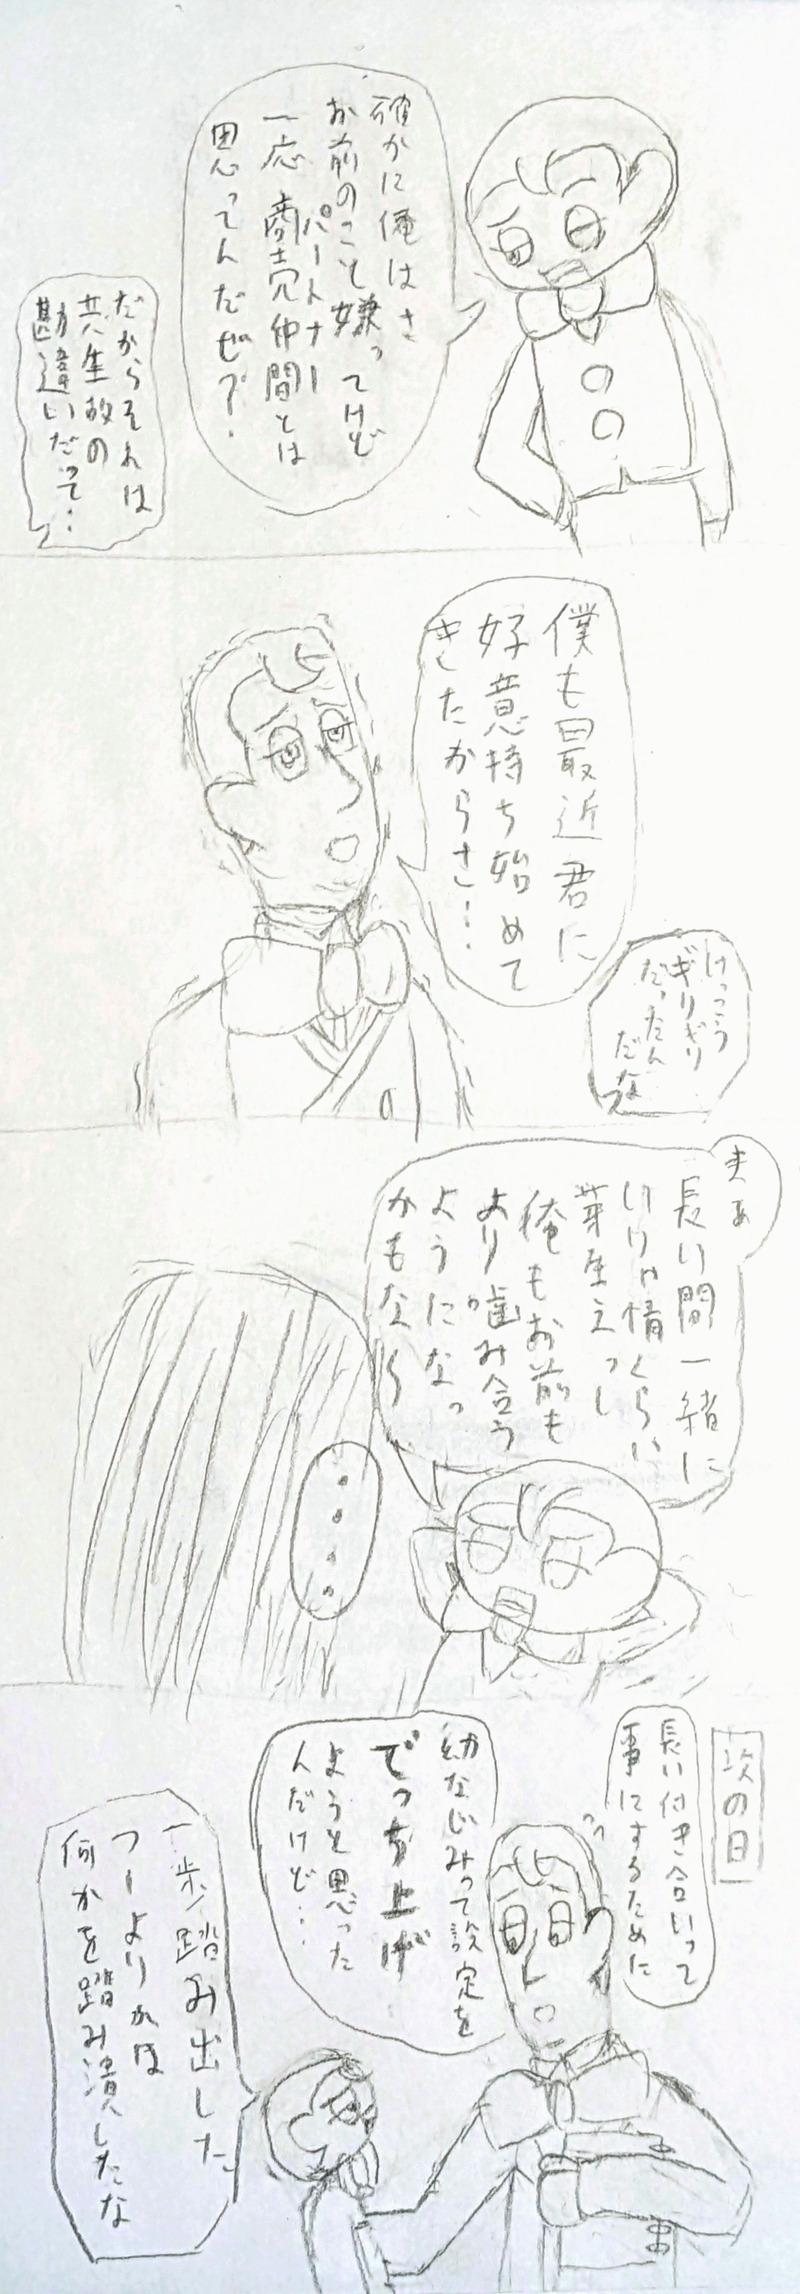 確かに俺はさ
お前のこと嫌ってけど
パートナー
一応商売仲間とは
思ってんだぜ?.
だからそれは
共生故の
勘違いだって…
僕も最近君に
好意持ち始めて
きたからさ…
けっこう
ぎりぎり
だったん
だな
まぁ
長い間一緒に
いりゃ情くらい
芽生えっし
俺もお前も
より噛み合う
ようになっ
かもなら
・・・・
次の日
長い付き合いって
事にするために
幼なじみって設定を
でっち上げ
ようと思った
んだけど…
一歩踏み出した
つーよりかは
何かを踏み潰したな